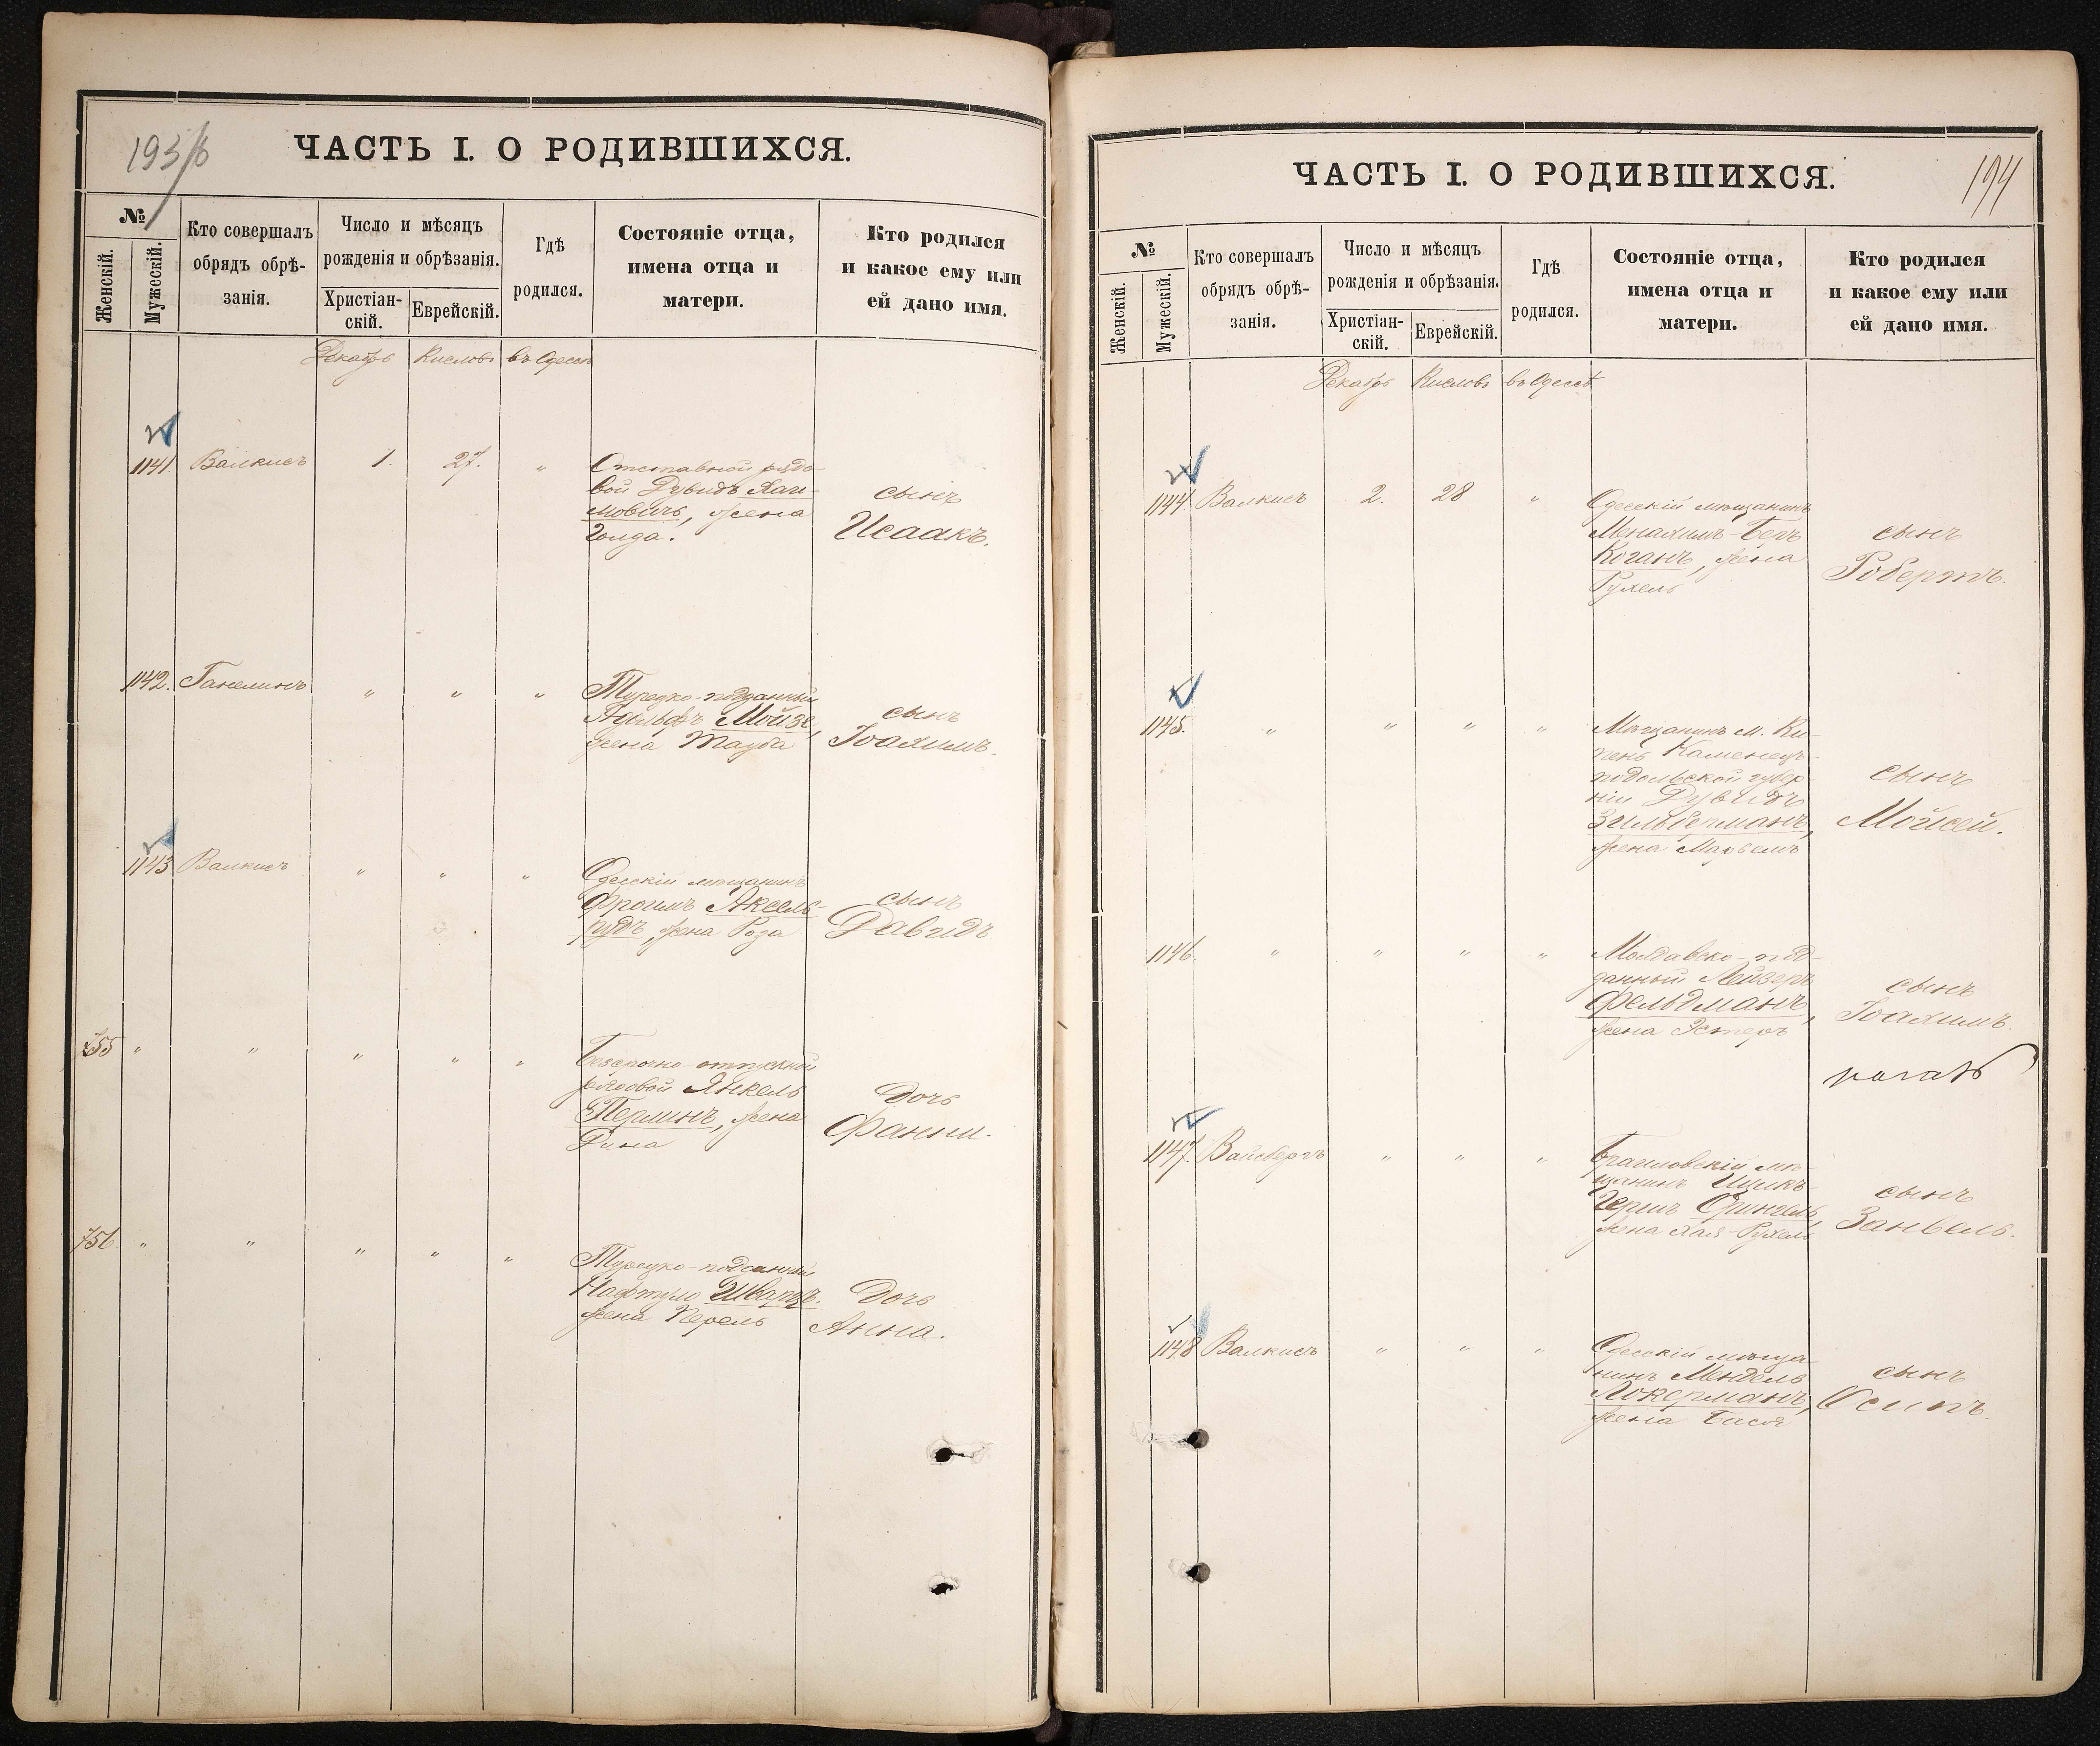 193/б
ЧАСТЬ I. О РОДИВШИХСЯ.
№
Женскій.
Мужескій.
Кто совершалъ
обрядъ обрѣ-
занія.
Число и мѣсяцъ
рожденія и обрѣзанія.
Христіан-
скій.
Еврейскій.
Гдѣ
родился.
Состояніе отца,
имена отца и
матери.
Кто родился
и какое ему или
ей дано имя.
Декабрь Кислевъ въ Одессѣ
1141. Валкисъ 1. 27. „ Отставной рядо-
вой Дувидъ Хаи-
мовичъ, жена
Голда.
сынъ
Исаакъ.
1142. Ганелинъ „ „ „ Турецко-подданный
Мойзе,
жена Тауба
сынъ
Іоахимъ.
1143 Валкисъ „ „ „ Одесскій мѣщанинъ
Фроимъ Аксель-
рудъ, жена Роза
сынъ
Давидъ
755 „ „ „ „ „ Безсрочно-отпускной
рядовой Янкель
Перлинъ, жена
Дина
Дочь
Фанни.
756. „ „ „ „ „ Турецко-подданный
Нафтуло Шварцъ.
жена Перель
Дочь
Анна.
194
ЧАСТЬ I. О РОДИВШИХСЯ.
№
Женскій.
Мужескій.
Кто совершалъ
обрядъ обрѣ-
занія.
Число и мѣсяцъ
рожденія и обрѣзанія.
Христіан-
скій.
Еврейскій.
Гдѣ
родился.
Состояніе отца,
имена отца и
матери.
Кто родился
и какое ему или
ей дано имя.
Декабрь Кислевъ въ Одессѣ
1144 Валкисъ 2. 28 „ Одесскій мѣщанинъ
Менахимъ-Беръ
Коганъ, жена
Рухель
сынъ
Робертъ.
1145. „ „ „ „ Мѣщанинъ м. Ку-
Каменецъ-
подольской губер-
ніи Дувидъ
Зильберманъ,
жена
сынъ
Мойсей.
1146. „ „ „ „ Молдавско-под-
данный Лейзеръ
Фельдманъ,
жена Эстеръ
сынъ
Іоахимъ.
1147. Вайсбергъ „ „ „ Браиловскій мѣ-
щанинъ Ицикъ-
Гершъ
жена Хая-Рухель
сынъ
Занвель.
1148 Валкисъ „ „ „ Одесскій мѣща-
нинъ Мендель
Локерманъ,
жена Бася
сынъ
Осипъ.